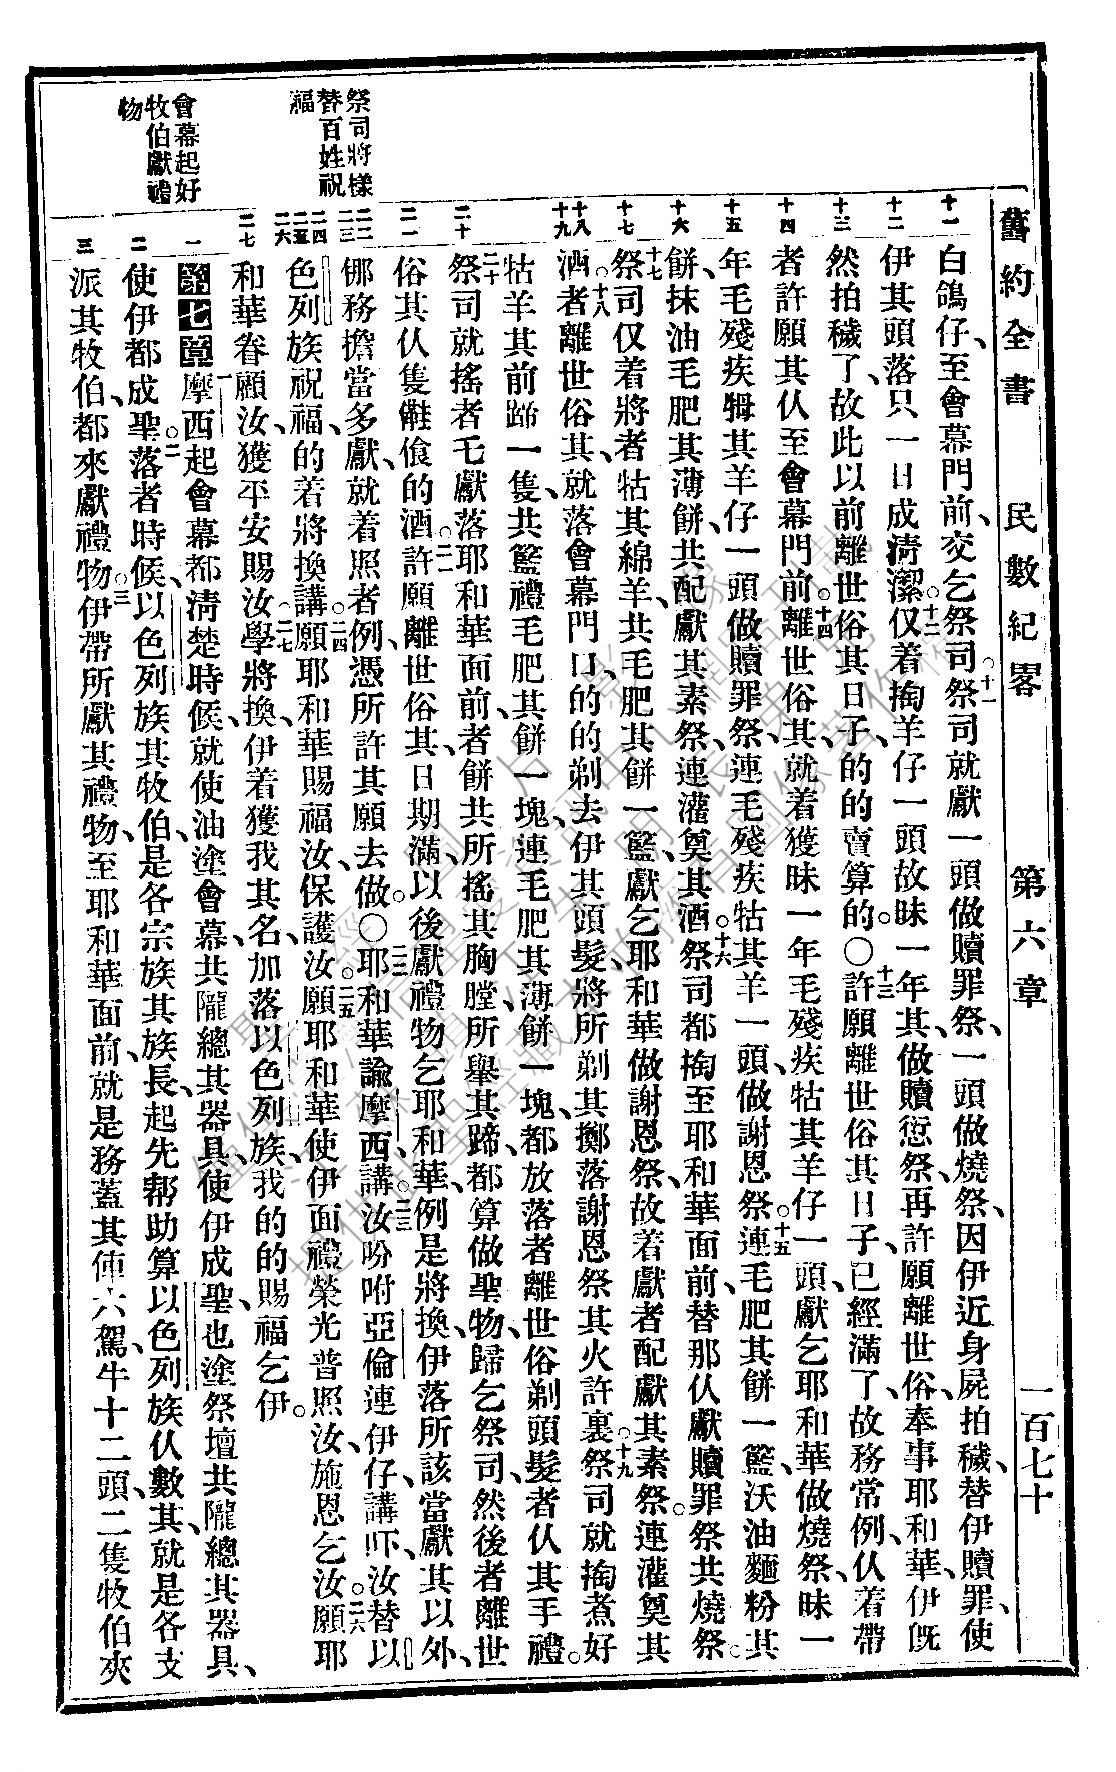 舊約全書　民數紀畧　第六章　一百七十
十一　白鴿仔、至會幕門前、交乞祭司。十一祭司就獻一頭做贖罪祭、一頭做燒祭、因伊近身屍拍穢、替伊贖罪、使
十二　伊其頭落只一日成淸潔。十二仅着掏羊仔一頭故昧一年其、做贖愆祭、再許願離世俗、奉事耶和華、伊旣
十三　然拍穢了、故此以前離世俗其日子、的的賣算的。○十三許願離世俗其日子已經滿了、故務常例、仅着帶
十四　者許願其仅至會幕門前。十四離世俗其、就着獲昧一年毛殘疾牯其羊仔一頭、獻乞耶和華做燒祭、昧一
十五　年毛殘疾牳其羊仔一頭做贖罪祭、連毛殘疾牯其羊一頭、做謝恩祭。十五連毛肥其餅一籃、沃油麵粉其
十六　餅、抹油毛肥其薄餅、共配獻其素祭、連灌奠其酒。十六祭司都掏至耶和華面前、替那仅獻贖罪祭共燒祭。
十七　十七祭司仅着將者牯其綿羊、共毛肥其餅一籃、獻乞耶和華做謝恩祭、故着獻者配獻其素祭、連灌奠其
十八十九　酒。十八者離世俗其、就落會幕門口、的的剃去伊其頭髮、將所剃其擲落謝恩祭其火許裏。十九祭司就掏煮好
牯羊其前蹄一隻、共籃禮毛肥其餅一塊、連毛肥其薄餅一塊、都放落者離世俗剃頭髮者仅其手禮。
二十　二十祭司就搖者乇獻落耶和華面前、者餅共所搖其胸膛、所舉其蹄、都算做聖物、歸乞祭司、然後者離世
二一　俗其仅隻雝飡的酒。二一許願離世俗其、日期滿、以後獻禮物乞耶和華、例是將換、伊落所該當獻其以外、
二二二三　倻務擔當多獻、就着照者例、憑所許其願去做。○二二耶和華諭摩西講、二三汝吩咐亞倫連伊仔講吓、汝替以
二四二五二六　色列族祝福、的着將換講。二四願耶和華賜福汝、保護汝。二五願耶和華使伊面禮榮光普照汝、施恩乞汝。二六願耶
二七　和華眷顧汝、獲平安賜汝。二七學將換、伊着獲我其名、加落以色列族、我的的賜福乞伊。
一　第七章　一摩西起會幕都淸楚時候、就使油塗會幕、共隴總其器具、使伊成聖、也塗祭壇共隴總其器具、
二　使伊都成聖。二落者時候、以色列族其牧伯、是各宗族其族長、起先帮助算以色列族仅數其、就是各支
三　派其牧伯、都來獻禮物。三伊帶所獻其禮物、至耶和華面前、就是務蓋其俥六駕、牛十二頭、二隻牧伯夾
祭司將樣
替百姓祝
福
會幕起好
牧伯獻禮
物